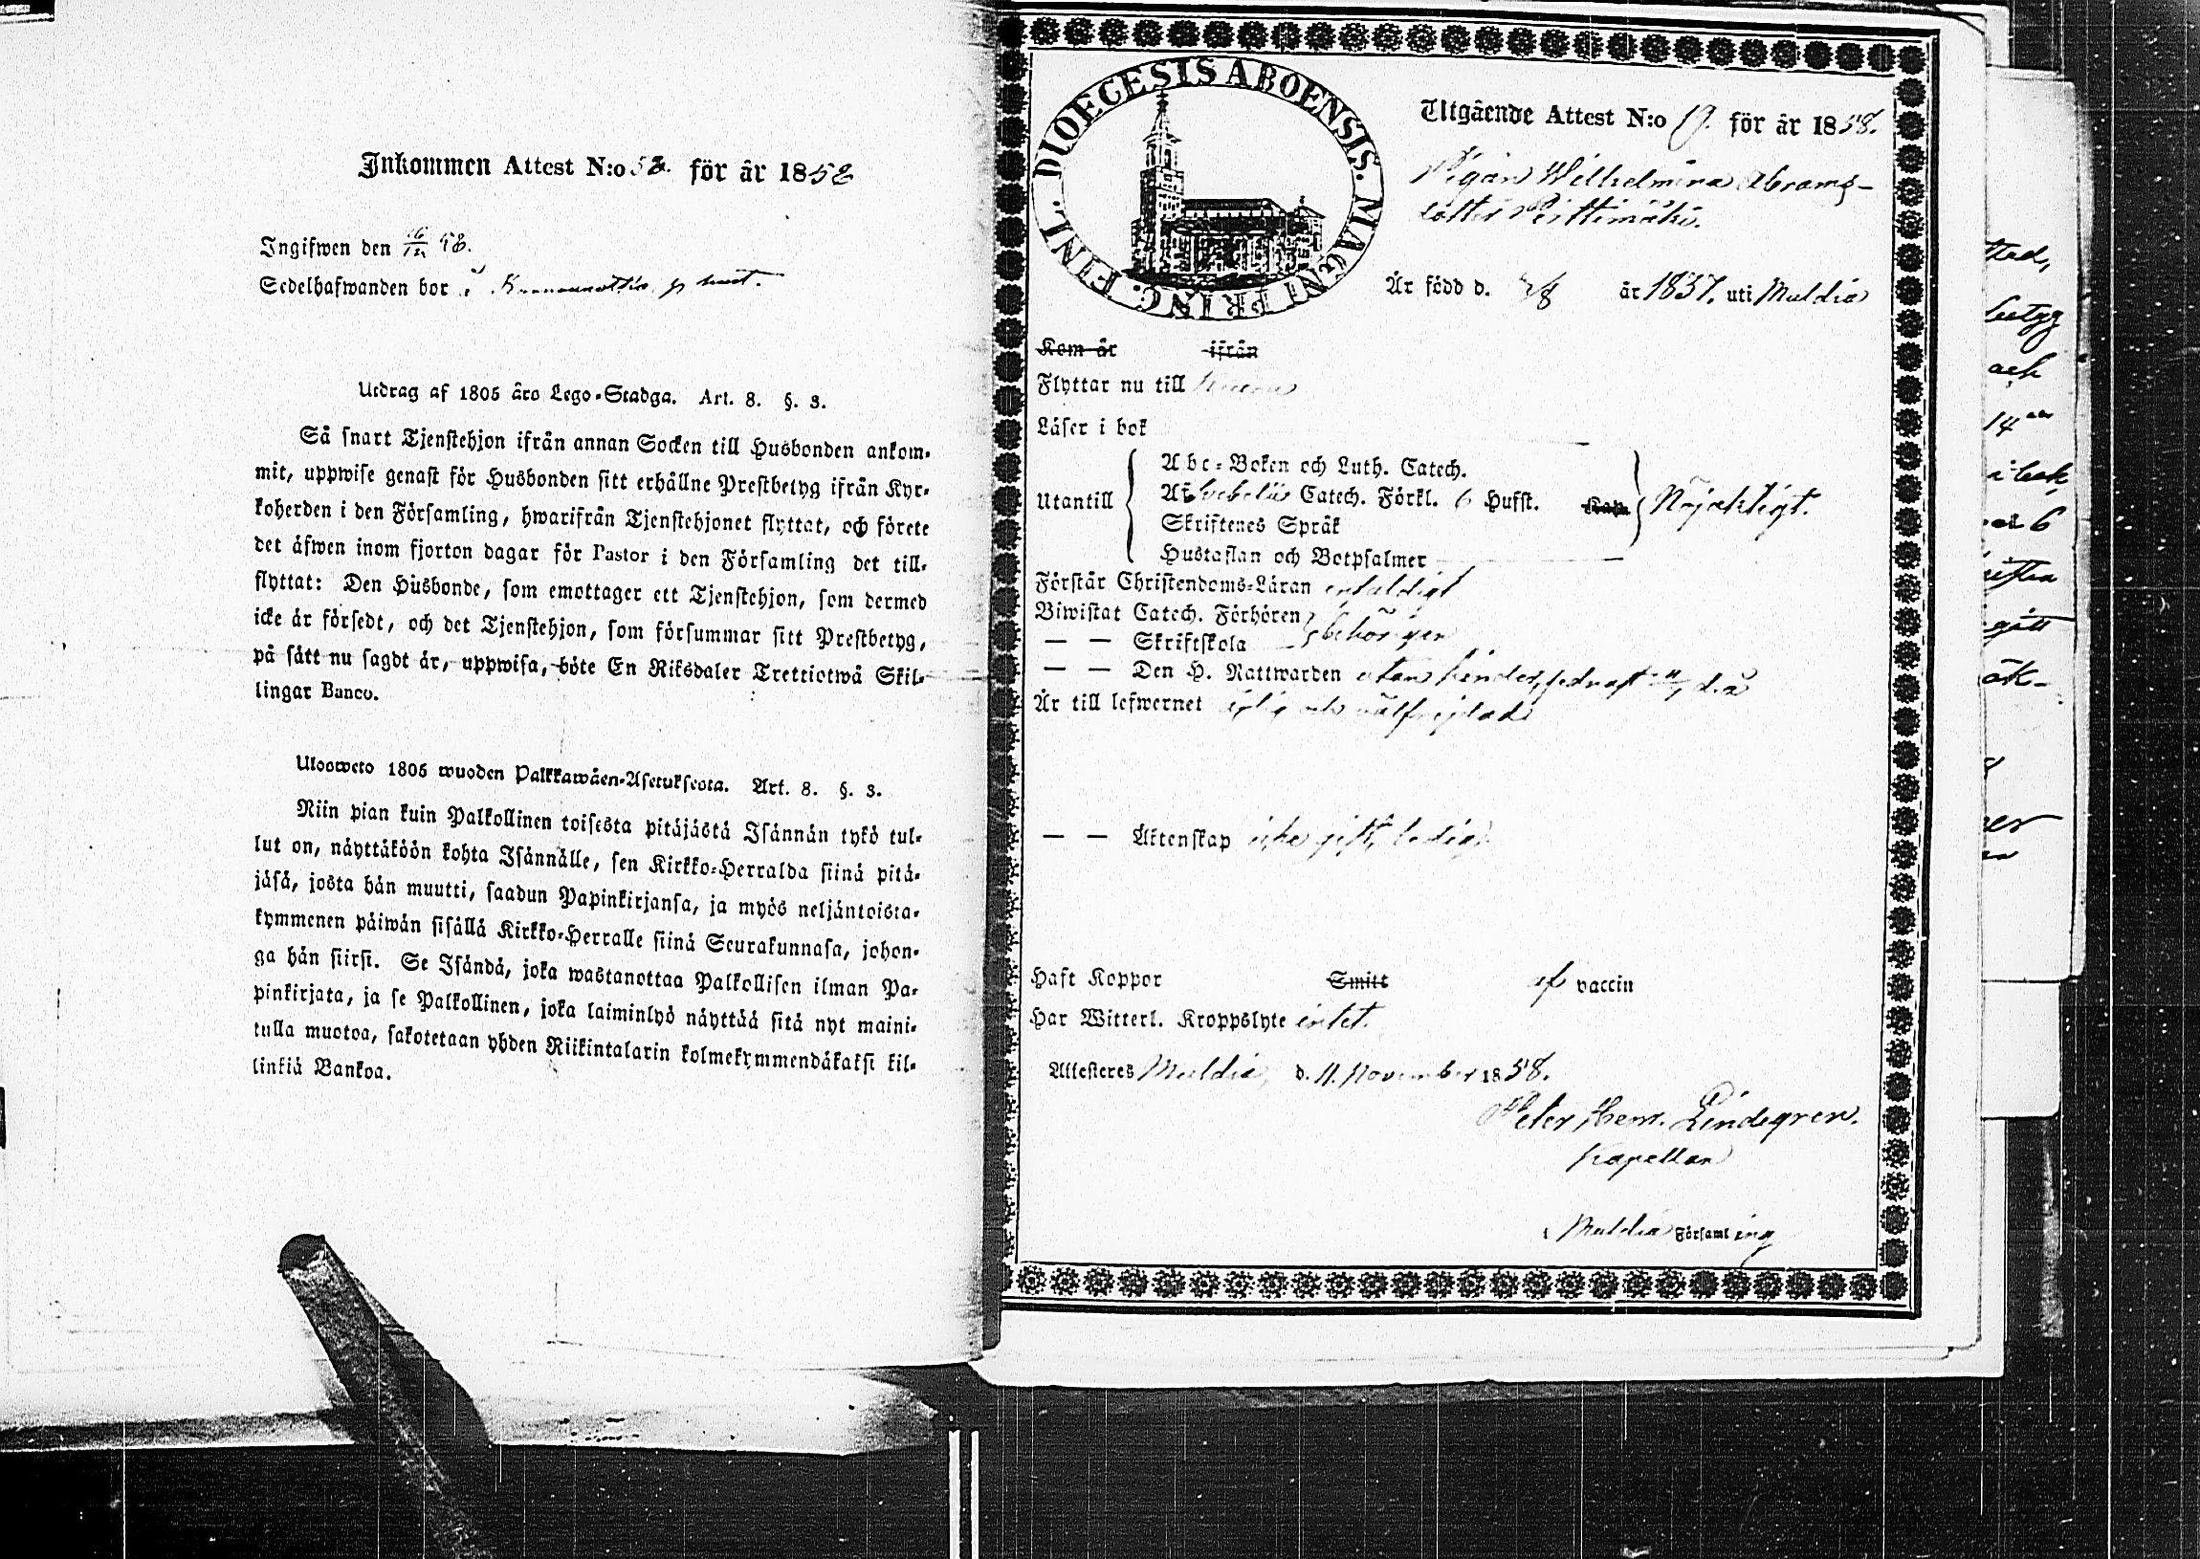 Inkommen Attest N:o 52. för år 1858
Ingifwen den 16/12 58.
Sedelhafwanden bor i
Utdrag af 1805 års Lego-Stadga. Art. 8. §. 3.
Så snart Tjenstehjon ifrån annan Socken till Husbonden ankom-
mit, uppwise genast för Husbonden sitt erhållne Prestbetyg ifrån Kyr-
koherden i den Församling, hwarifrån Tjenstehjonet flyttat, och förete
det äfwen inom fjorton dagar för Pastor i den Församling det till-
flyttat: Den Husbonde, som emottager ett Tjenstehjon, som dermed
icke är försedt, och det Tjenstehjon, som försummar sitt Prestbetyg,
på sätt nu sagdt är, uppwisa, böte En Riksdaler Trettiotwå Skil-
lingar Banco.
Ulosweto 1805 wuoden Palkkawäen-Asetuksesta. Art. 8. §. 3.
Niin pian kuin Palkollinen toisesta pitäjästä Isännän tykö tul-
lut on, näyttäköön kohta Isännälle, sen Kirkko-Herralda siinä pitä-
jäsä, josta hän muutti, saadun Papinkirjansa, ja myös neljäntoista-
kymmenen päiwän sisällä Kirkko-Herralle siinä Seurakunnasa, johon-
ga hän siirsi. Se Isändä, joka wastanottaa Palkollisen ilman Pa-
pinkirjata, ja se Palkollinen, joka laiminlyö näyttää sitä nyt maini-
tulla muotoa, sakotetaan yhden Riikintalarin kolmekymmendäkaksi kil-
linkiä Bankoa.
DIOECESIS ABOENSIS. MAGNI PRINC. FINL.
Utgående Attest N:o 19. för år 1858.
Pigan Wilhelmina Abrams-
dotter Perttimäki.
Är född d. 2/8 år 1837. uti Muldia
Kom år ifrån
Flyttar nu till Keuru
Läser i bok
Abc-Boken och Luth. Catech.
Utantill Svebelii Catech. Förkl. 6 Hufst. Kap. Nöjaktigt.
Skriftenes Språk
Hustaflan och Botpsalmer
Förstår Christendoms-Läran enfaldigt
Biwistat Catech. Förhören
— — Skriftskola behörigen
— — Den H. Nattwarden utan hinder, sednast d.å
Är till lefwernet ärlig och välfrejdad
— — Äktenskap icke gift, ledig.
Haft Koppor Smitt af vaccin
Har Witterl. Kroppslyte intet.
Attesteres Muldia, d. 11. November 1858.
Peter Herm. Lindegren.
Kapellan
i Muldia Församling
betyg
och
14
i bok
6